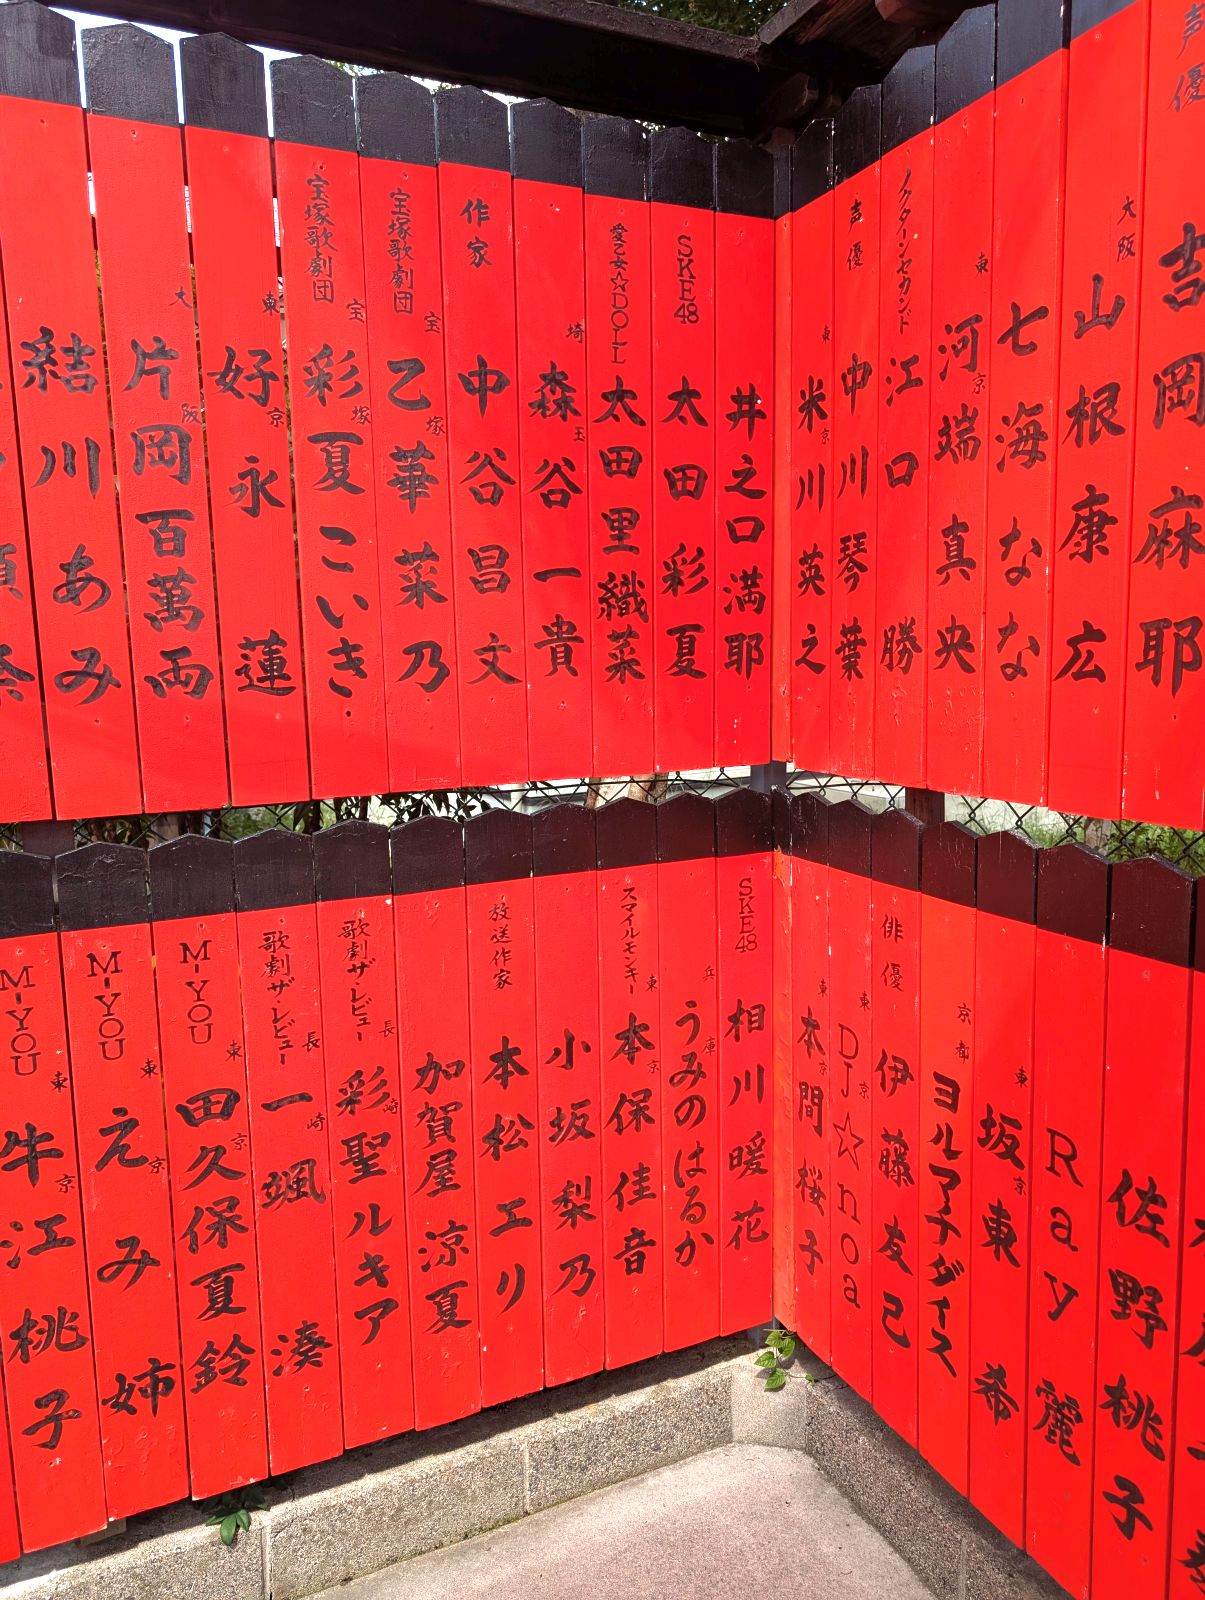 声優 吉岡麻耶
大阪 山根康広
七海なな
東京 河端真央
ノクターンセカンド 江口勝
声優 中川琴葉
東京 米川英之
井之口満耶
SKE48 太田彩夏
愛乙女☆DOLL 太田里織菜
埼玉 森谷一貴
作家 中谷昌文
宝塚歌劇団 宝塚 乙華菜乃
宝塚歌劇団 宝塚 彩夏こいき
東京 好永蓮
大阪 片岡百萬両
結川あみ
佐野桃子
Ray麗
東京 坂東希
京都
俳優 伊藤友己
東京 DJ☆noa
東京 本間桜子
SKE48 相川暖花
兵庫 うみのはるか
スマイルモンキー 東京 本保佳音
小坂梨乃
放送作家 本松エリ
加賀屋涼夏
歌劇ザ・レビュー 長崎 彩聖ルキア
歌劇ザ・レビュー 長崎 一颯湊
M-YOU 東京 田久保夏鈴
M-YOU 東京 えみ姉
M-YOU 東京 牛江桃子